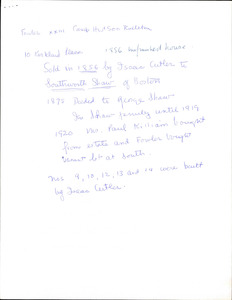 10 Kirkland Place 1856 unfinished house.
Sold in 1856 by Isaac Cutler to
Southworth Shaw of Boston
1875 Deeded to George Shaw
In Shaw family until 1919
1920 Mr. Paul Killiam bought
from estate and Fowler Wright
next lot at south.
Nos 8, 10, 12, 13 and 14 were built
by Isaac Cutler.